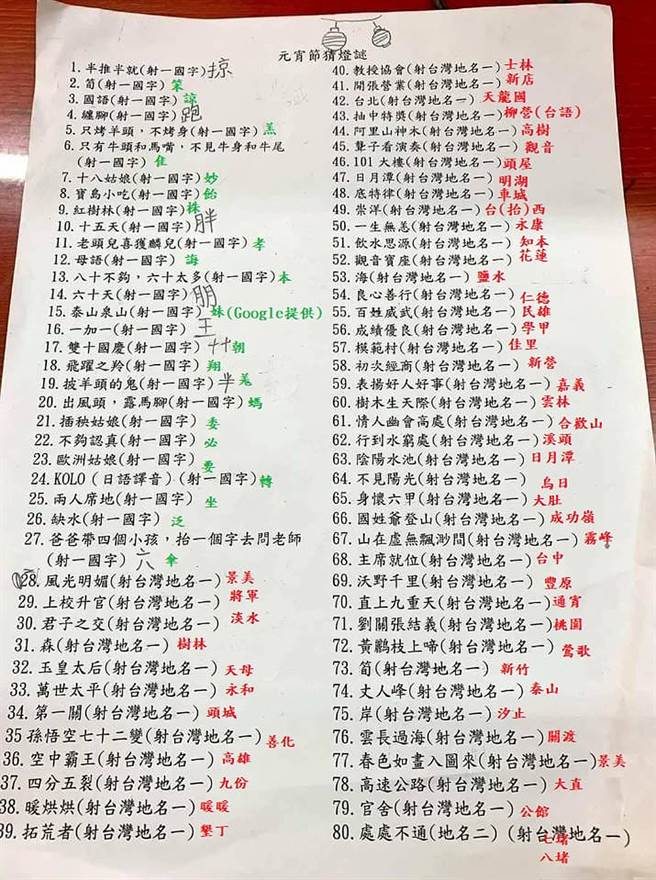 元宵節猜燈謎
1. 半推半就(射一國字)掠
2. 筍(射一國字)笨
3. 國語(射一國字)諒
4. 纏腳(射一國字)跑
5. 只烤羊頭，不烤身(射一國字)羔
6. 只有牛頭和馬嘴，不見牛身和牛尾
(射一國字) 隹
7. 十八姑娘(射一國字)妙
8. 寶島小吃(射一國字)飴
9. 紅樹林(射一國字)株
10. 十五天(射一國字)胖
11. 老頭兒喜獲麟兒(射一國字)孝
12. 母語(射一國字) 誨
13. 八十不夠，六十太多(射一國字)本
14. 六十天(射一國字)朋
15. 泰山泉山(射一國字) 妹(Google提供)
16. 一加一(射一國字)王
17. 雙十國慶(射一國字)艹朝
18. 飛躍之羚(射一國字) 翔
19. 披羊頭的鬼(射一國字)羌
20. 出風頭，露馬腳(射一國字)螞
21. 插秧姑娘(射一國字) 委
22. 不夠認真(射一國字) 必
23. 歐洲姑娘(射一國字) 要
24. KOLO(日語譯音)(射一國字)轉
25. 兩人席地(射一國字) 坐
26. 缺水(射一國字) 泛
27. 爸爸帶四個小孩，抬一個字去問老師
(射一國字) 六 傘
28. 風光明媚(射台灣地名一)景美
29. 上校升官(射台灣地名一) 將軍
30. 君子之交(射台灣地名一) 淡水
31. 森(射台灣地名一) 樹林
32. 玉皇太后(射台灣地名一)天母
33. 萬世太平(射台灣地名一)永和
34. 第一關(射台灣地名一) 頭城
35 孫悟空七十二變(射台灣地名一)善化
36. 空中霸王(射台灣地名一)高雄
37. 四分五裂(射台灣地名一)九份
38. 暖烘烘(射台灣地名一)暖暖
39. 拓荒者(射台灣地名一)墾丁
40. 教授協會(射台灣地名一)士林
41. 開張營業(射台灣地名一)新店
42. 台北(射台灣地名一) 天龍國
43. 抽中特獎(射台灣地名一)柳營(台語)
44. 阿里山神木(射台灣地名一)高樹
45. 聾子看演奏(射台灣地名一) 觀音
46. 101大樓(射台灣地名一)頭屋
47. 日月潭(射台灣地名一)明湖
48. 底特律(射台灣地名一)車城
49. 崇洋(射台灣地名一)台(抬)西
50. 一生無恙(射台灣地名一)永康
51. 飲水思源(射台灣地名一) 知本
52. 觀音寶座(射台灣地名一)花蓮
53. 海(射台灣地名一) 鹽水
54. 良心善行(射台灣地名一)仁德
55. 百姓威武(射台灣地名一)民雄
56. 成績優良(射台灣地名一)學甲
57. 模範村(射台灣地名一)佳里
58. 初次經商(射台灣地名一) 新營
59. 表揚好人好事(射台灣地名一)嘉義
60. 樹木生天際(射台灣地名一)雲林
61. 情人幽會高處(射台灣地名一)合歡山
62. 行到水窮處(射台灣地名一)溪頭
63. 陰陽水池(射台灣地名一)日月潭
64. 不見陽光(射台灣地名一) 烏日
65. 身懷六甲(射台灣地名一)大肚
66. 國姓爺登山(射台灣地名一)成功嶺
67. 山在虛無飄渺間(射台灣地名一)霧峰
68. 主席就位(射台灣地名一)台中
69. 沃野千里(射台灣地名一) 豐原
70. 直上九重天(射台灣地名一)通宵
71. 劉關張結義(射台灣地名一)桃園
72. 黃鸝枝上啼(射台灣地名一) 鶯歌
73. 筍(射台灣地名一) 新竹
74. 丈人峰(射台灣地名一)泰山
75. 岸(射台灣地名一)汐止
76. 雲長過海(射台灣地名一)關渡
77. 春色如畫入圖來(射台灣地名一)景美
78. 高速公路(射台灣地名一) 大直
79. 官舍(射台灣地名一) 公館
80. 處處不通(地名二)(射台灣地名一)
七堵
八堵